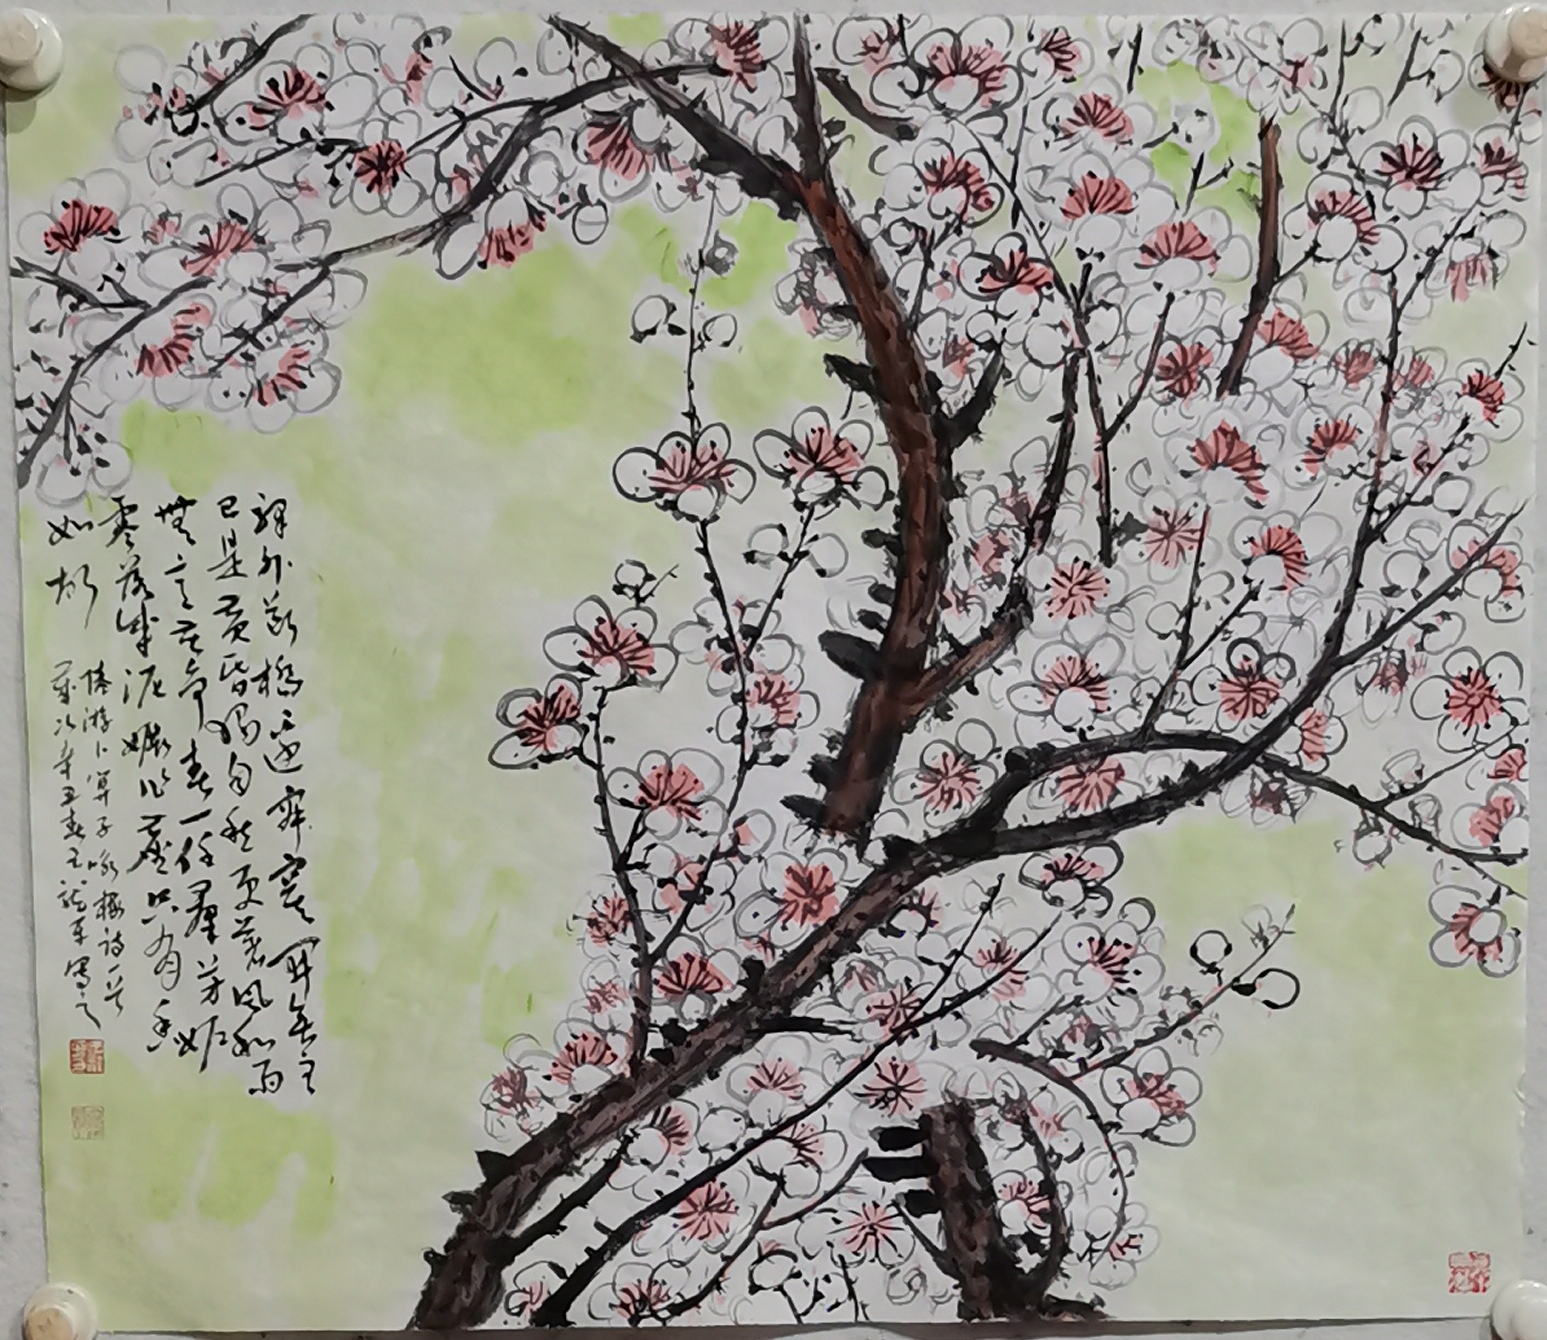 驿外断桥边寂寞开无主
已是黄昏独自愁更著风和雨
无意苦争春一任群芳妒
零落成泥碾作尘只有香
如故
陆游卜算子咏梅诗一首
岁次辛丑春王龙军写之